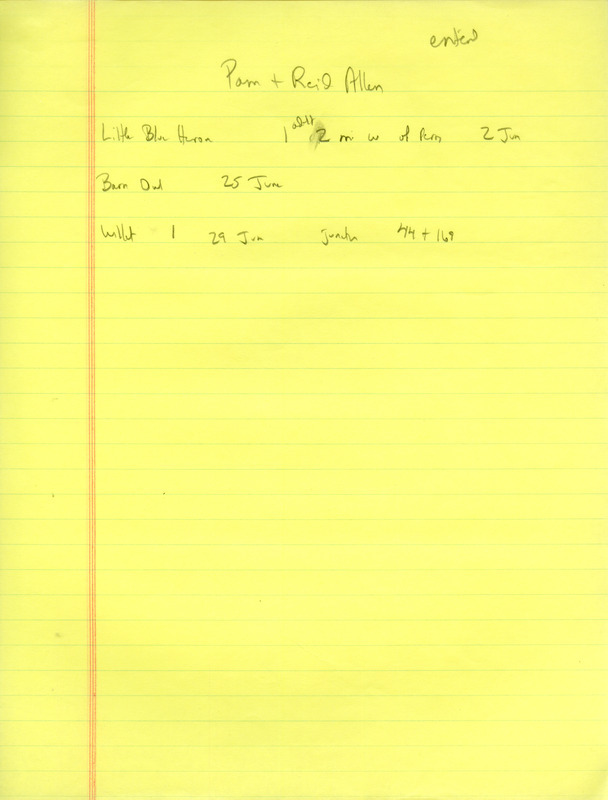 entered
Pam + Reid Allen
Little Blue Heron 1 adult 2 mi w of Perry 2 Jun
Barn Owl 25 June
Willet 1 29 Jun junction 44 + 169